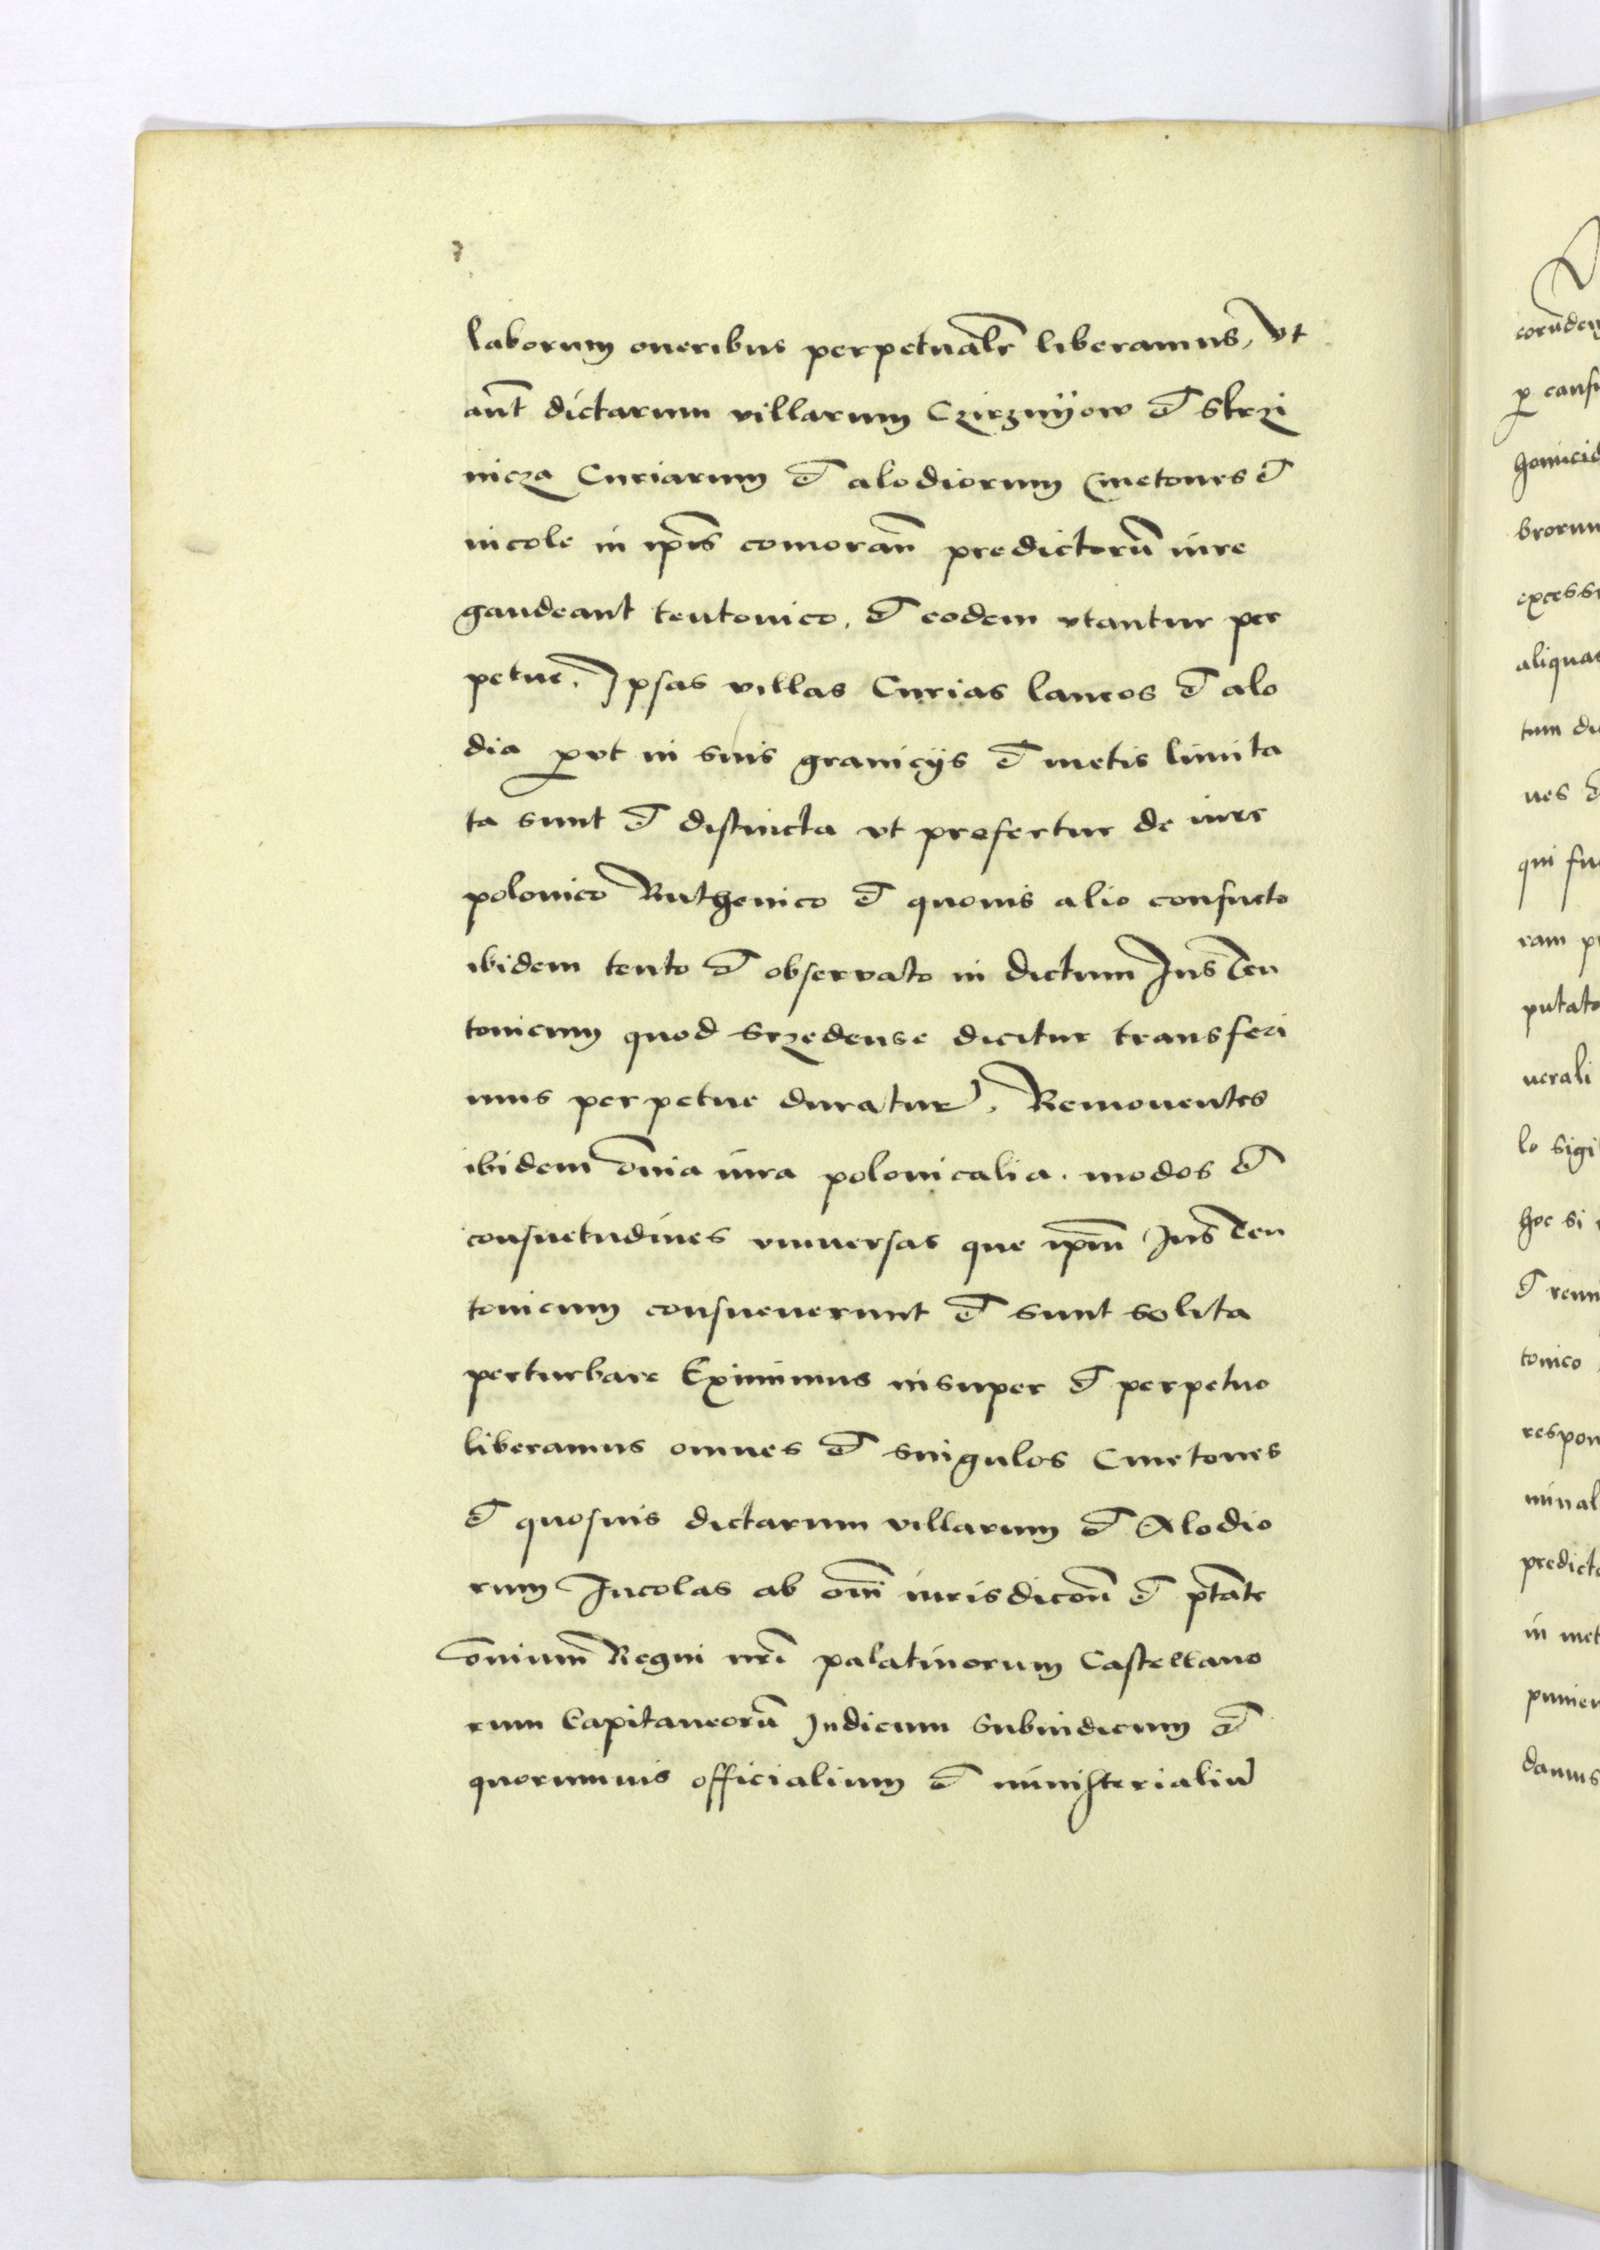 laborum oneribus perpetualr̃ liberamus, vt
aut̃ dictarum villarum Czirznÿow et Skrzi
nicza Curiarum et alodiorum Cmetones et
incole in ip̃is comoran̄ predictorū iure
gaudeant teutonico, et eodem vtantur per
petue, Ipsas villas Curias laneos et alo
dia ꝓut in suis granicijs et metis limita
ta sunt et distincta vt prefertur de iure
polonico Ruthenico et quouis alio consueto
ibidem tento et observato in dictum Ius Teu
tonicum quod Srzedense dicitur transferi
mus perpetue duratur̃, Remouentes
ibidem om̃ia iura polonicalia, modos et
consuetudines vniuersas que ip̃m Ius Teu
tonicum consueuerunt et sunt solita
perturbare Eximimus insuper et perpetuo
liberamus omnes et singulos Cmetones
et quosuis dictarum villarum et Alodio
rum Incolas ab om̃i iurisdicōn̄ et p̃tate
om̃ium Regni nr̃i palatinorum Castellano
rum Capitaneorū Iudicum Subiudicum et
quorumuis officialium et ministerialiū
corūdem
ꝑ caus
homicid
brorum
excess
aliquas
tum di
nes
qui fu
ram p
putato
nerali
lo sigi
hoc si
tonico
respon
minal
predict
in met
punien
damus